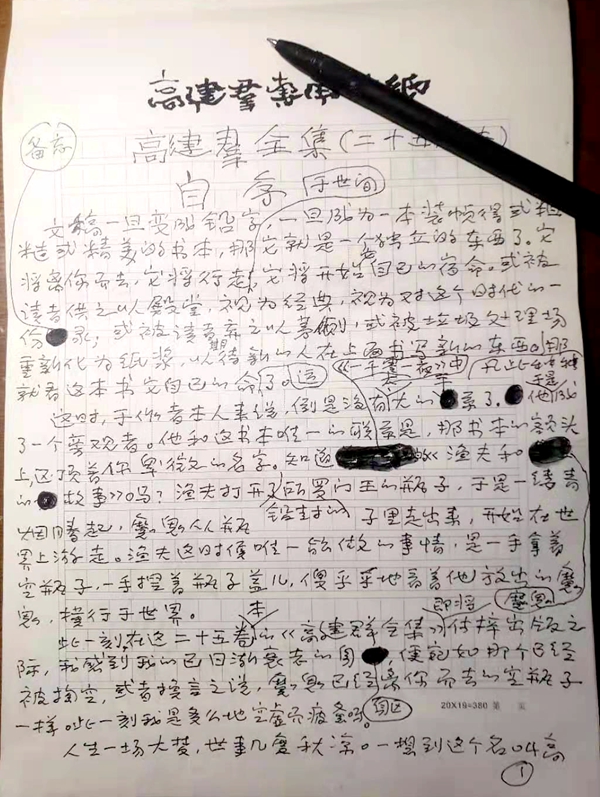 高建群专用稿纸
高建群全集(二十五卷本)
备忘
自序
于世间
文稿一旦变成铅字,一旦成为一本装帧得或粗
糙或精美的书本,那它就是一个独立的东西了。它
将离你而去,它将行走,它将开始自己的宿命。或被
读者供之以殿堂,视为经典,视为对这个时代的一
份录;或被读者弃之以,或被垃圾处理场
重新化为纸浆,以期待新的人在上面书写新的东西。那
就看这本书交自己的命了。运
《一千零一夜》中
这时,于作者本人来说,倒是没有太大的干系了。他成
于是
了一个旁观者。他和这书本唯一的联系是,那书本的额头
上,还顶着你卑微的名字。知道《渔夫和
的故事》吗?渔夫打开了所罗门王的瓶子,于是一缕青
烟冒起,魔鬼从瓶子里走出来,开始在世
铅封的
界上游走。渔夫这时候唯一能做的事情,是一手拿着
空瓶子,一手捏着瓶子盖儿,傻乎乎地看着他放出的魔
鬼,横行于世界。
魔鬼
本
即将
此一刻,在这二十五卷的《高建群全集》付梓出版之
际,我感到我的已日渐衰老的,便宛如那个已经
被掏空,或者换言之说,魔鬼已经离你而去的空瓶子
一样。此一刻我是多么地空虚而疲惫呀。
20X19=380 第 页
人生一场大梦,世事几度秋凉。一想到这个名叫高
1